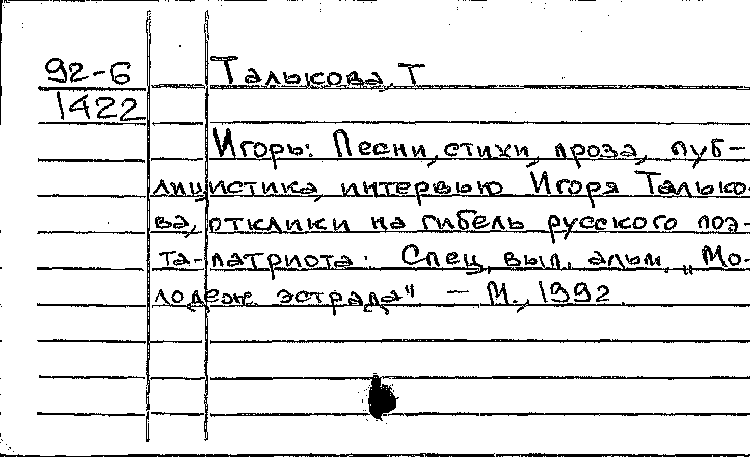 92-6 Талькова, Т
1422
Игорь: Песни, стихи, проза, пуб-
лицистика, интервью Игоря Талько-
ва, отклики на гибель русского поэ-
та-патриота: Спец. вып. альм. „Мо-
лодеж. эстрада" — М., 1992.